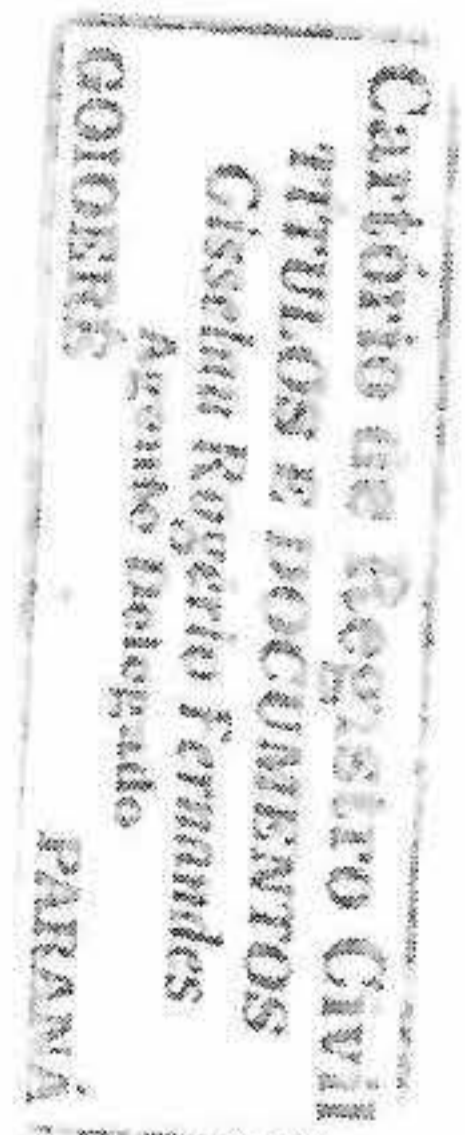 Cartório de Registro Civil
E
TITULOS E DOCUMENTOS
Gisselma Rogerio Fernandes
Agente Delegado
GOIOERÊ PARANÁ